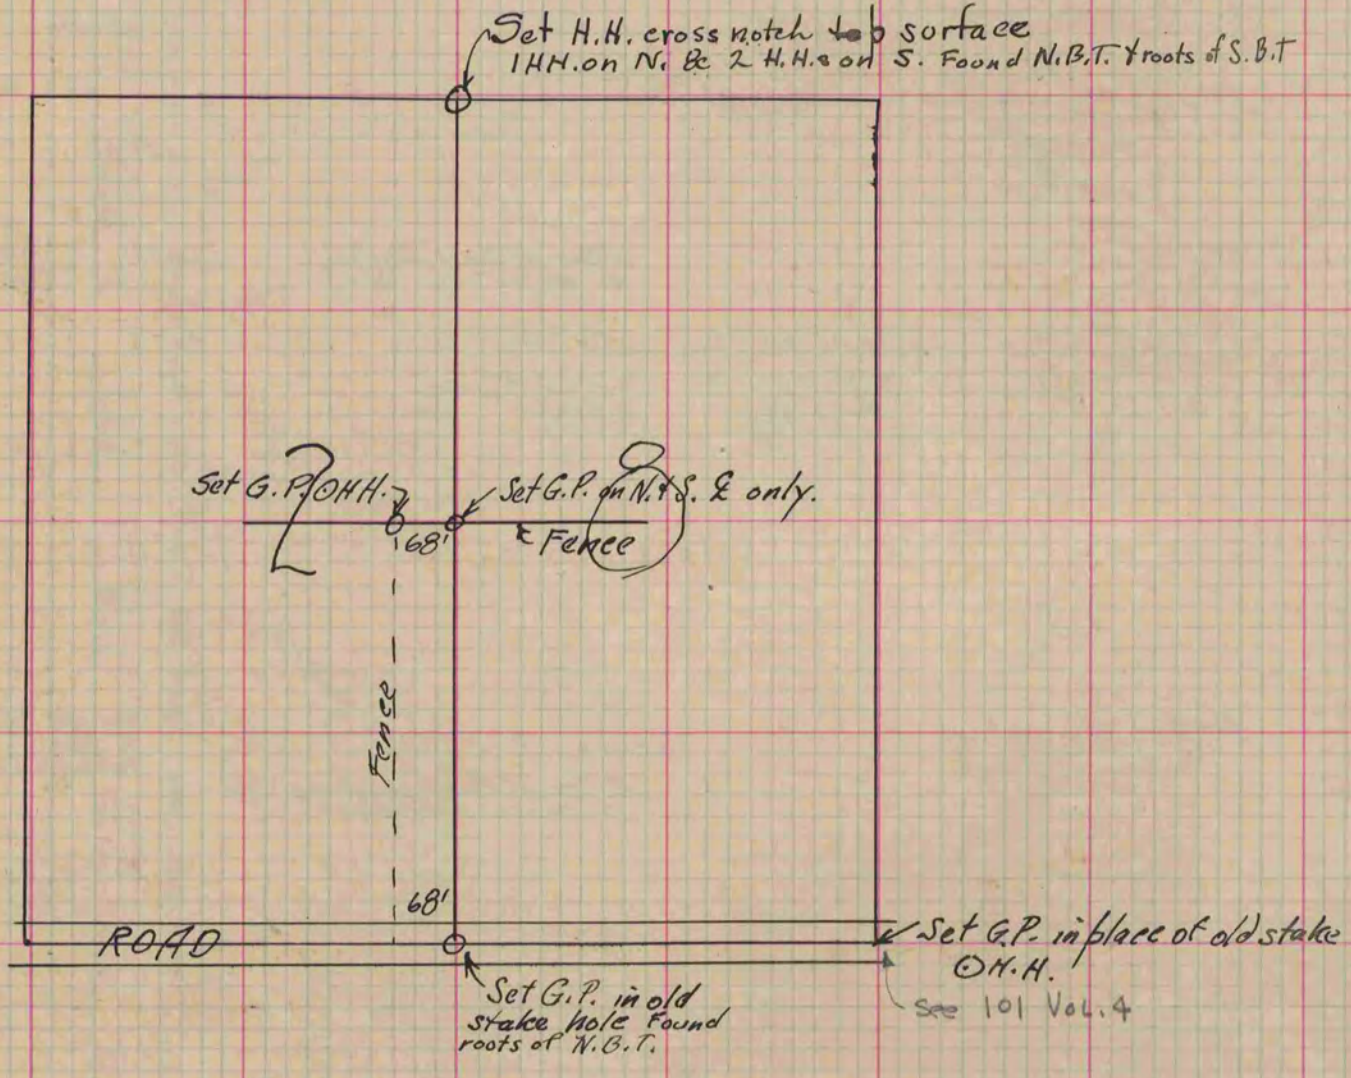 Set H.H. cross notch top surface
1 H.H. on N. & 2 H.H.s on S. Found N.B.T. & roots of S.B.T
Set G.P. ⊙ H.H.
Set G.P. on N. & S. ℄ only.
68'
Fence
2
8
Fence
68'
ROAD
Set G.P. in place of old stake
⊙ H.H.
See 101 VOL. 4
Set G.P. in old
stake hole Found
roots of N.B.T.